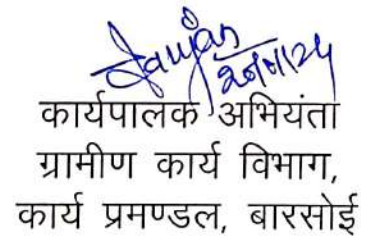 कार्यपालक अभियंता
ग्रामीण कार्य विभाग,
कार्य प्रमण्डल, बारसोई